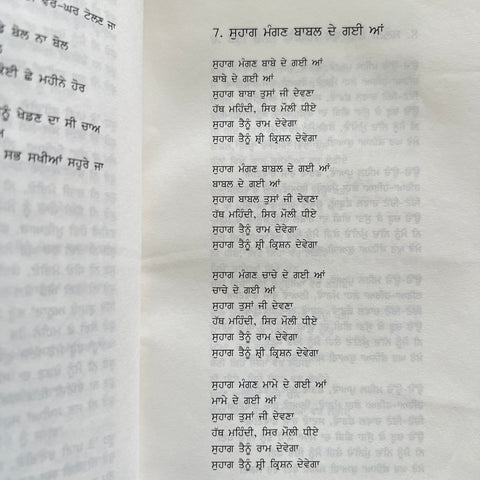 ਵਰ-ਘਰ ਟੋਲਣ ਜਾ
ਬੋਲ ਨਾ ਬੋਲ
ਛੇ ਮਹੀਨੇ ਹੋਰ
ਨੂੰ ਖੇਡਣ ਦਾ ਸੀ ਚਾਅ
ਸਭ ਸਖੀਆਂ ਸਹੁਰੇ ਜਾ
7. ਸੁਹਾਗ ਮੰਗਣ ਬਾਬਲ ਦੇ ਗਈ ਆਂ
ਸੁਹਾਗ ਮੰਗਣ ਬਾਬੇ ਦੇ ਗਈ ਆਂ
ਬਾਬੇ ਦੇ ਗਈ ਆਂ
ਸੁਹਾਗ ਬਾਬਾ ਤੁਸਾਂ ਜੀ ਦੇਵਣਾ
ਹੱਥ ਮਹਿੰਦੀ, ਸਿਰ ਮੌਲੀ ਧੀਏ
ਸੁਹਾਗ ਤੈਨੂੰ ਰਾਮ ਦੇਵੇਗਾ
ਸੁਹਾਗ ਤੈਨੂੰ ਸ਼੍ਰੀ ਕ੍ਰਿਸ਼ਨ ਦੇਵੇਗਾ
ਸੁਹਾਗ ਮੰਗਣ ਬਾਬਲ ਦੇ ਗਈ ਆਂ
ਬਾਬਲ ਦੇ ਗਈ ਆਂ
ਸੁਹਾਗ ਬਾਬਲ ਤੁਸਾਂ ਜੀ ਦੇਵਣਾ
ਹੱਥ ਮਹਿੰਦੀ, ਸਿਰ ਮੌਲੀ ਧੀਏ
ਸੁਹਾਗ ਤੈਨੂੰ ਰਾਮ ਦੇਵੇਗਾ
ਸੁਹਾਗ ਤੈਨੂੰ ਸ਼੍ਰੀ ਕ੍ਰਿਸ਼ਨ ਦੇਵੇਗਾ
ਸੁਹਾਗ ਮੰਗਣ ਚਾਚੇ ਦੇ ਗਈ ਆਂ
ਚਾਚੇ ਦੇ ਗਈ ਆਂ
ਸੁਹਾਗ ਤੁਸਾਂ ਜੀ ਦੇਵਣਾ
ਹੱਥ ਮਹਿੰਦੀ, ਸਿਰ ਮੌਲੀ ਧੀਏ
ਸੁਹਾਗ ਤੈਨੂੰ ਰਾਮ ਦੇਵੇਗਾ
ਸੁਹਾਗ ਤੈਨੂੰ ਸ਼੍ਰੀ ਕ੍ਰਿਸ਼ਨ ਦੇਵੇਗਾ
ਸੁਹਾਗ ਮੰਗਣ ਮਾਮੇ ਦੇ ਗਈ ਆਂ
ਮਾਮੇ ਦੇ ਗਈ ਆਂ
ਸੁਹਾਗ ਤੁਸਾਂ ਜੀ ਦੇਵਣਾ
ਹੱਥ ਮਹਿੰਦੀ, ਸਿਰ ਮੌਲੀ ਧੀਏ
ਸੁਹਾਗ ਤੈਨੂੰ ਰਾਮ ਦੇਵੇਗਾ
ਸੁਹਾਗ ਤੈਨੂੰ ਸ਼੍ਰੀ ਕ੍ਰਿਸ਼ਨ ਦੇਵੇਗਾ